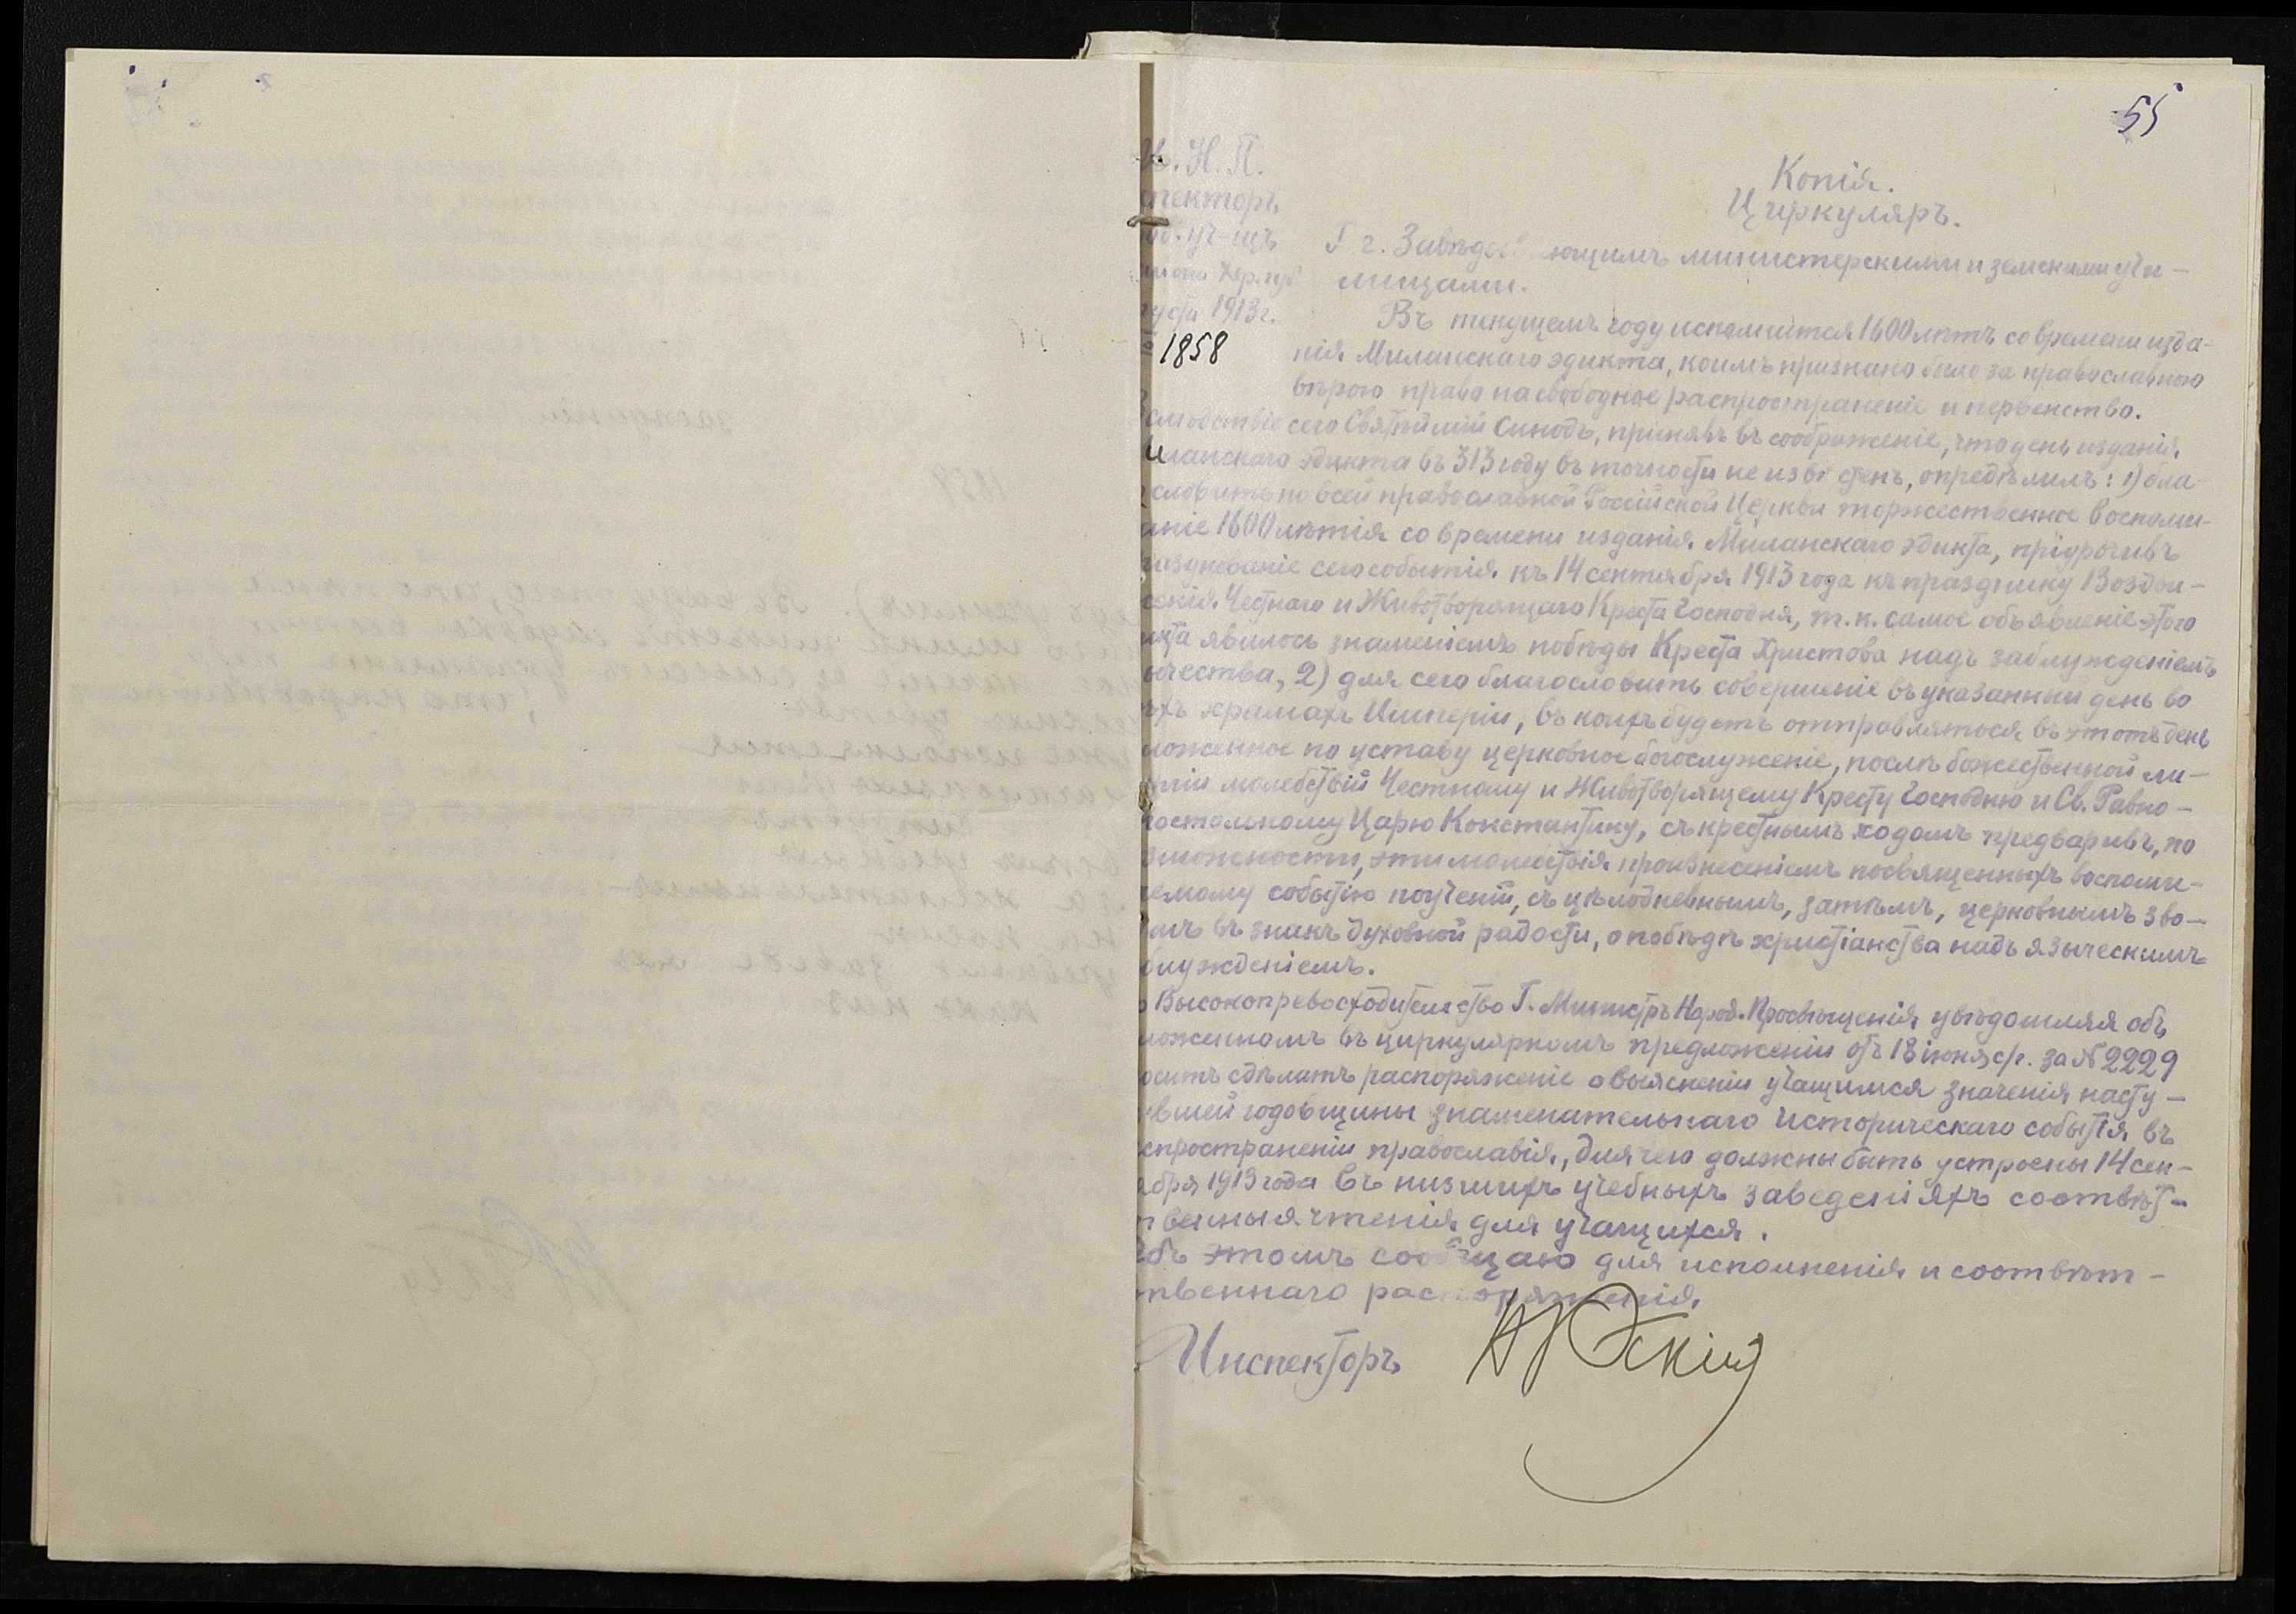 55
Копія.
Циркуляръ.
М. Н. П.
спекторъ
уч-щъ
Хер. губ
1913 г.
1858
Г г. Завѣдывающимъ министерскими и земскими учи-
лищами.
Въ текущемъ году исполнится 1600 лѣтъ со времени изда-
нія Миланскаго эдикта, коимъ признано было за православною
вѣрою право на свободное распространеніе и первенство.
слѣдствіе сего Святѣйшій Синодъ, принявъ въ соображеніе, что день изданія
иланскаго эдикта въ 313 году въ точности не извѣстенъ, опредѣлилъ: 1) бла-
словить по всей православной Россійской Церкви торжественное воспоми-
аніе 1600 лѣтія со времени изданія Миланскаго эдикта, пріурочивъ
разднованіе сего событія къ 14 сентября 1913 года къ празднику Воздви-
женія Честнаго и Животворящаго Креста Господня, т. к. самое объявленіе этого
икта явилось знаменіемъ побѣды Креста Христова надъ заблужденіемъ
ычества, 2) для сего благословить совершеніе въ указанный день во
ѣхъ храмахъ Имперіи, въ коихъ будетъ отправляться въ этотъ день
ложенное по уставу церковное богослуженіе, послѣ божественной ли-
ргіи молебствій Честному и Животворящему Кресту Господню и Св. Равно-
постольному Царю Константину, съ крестнымъ ходомъ предваривъ, по
зможности, эти молебствія произнесеніемъ посвященныхъ воспоми-
аемому событію поученій, съ цѣлодневнымъ, затѣмъ, церковнымъ зво-
омъ въ знакъ духовной радости, о побѣдѣ христіанства надъ языческимъ
блужденіемъ.
о Высокопревосходительство Г. Министръ Народ. Просвѣщенія увѣдомляя объ
ложенномъ въ циркулярномъ предложеніи отъ 18 іюня с/г. за № 2229
оситъ сдѣлать распоряженіе о выясненіи учащимся значенія насту-
ившей годовщины знаменательнаго историческаго событія въ
спространеніи православія, для чего должны быть устроены 14 сен-
ября 1913 года въ низшихъ учебныхъ заведеніяхъ соотвѣт-
твенныя чтенія для учащихся.
Объ этомъ сообщаю для исполненія и соотвѣт-
твеннаго распоряженія.
Инспекторъ